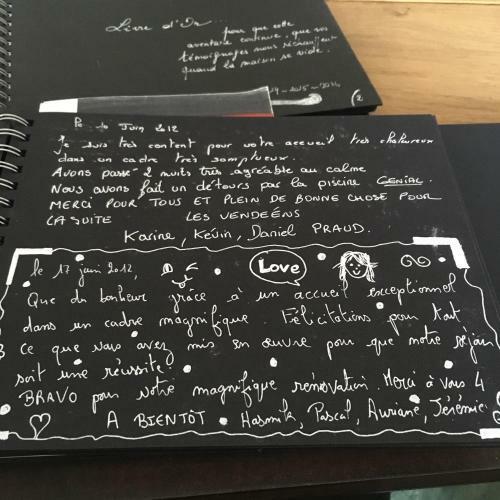 Livre d'Or...
pour que cette
aventure continue, que vos
témoignages nous réchauffent
quand la maison se vide.
14-2015-2014
(2
Juin 2012
Je suis très content pour votre accueil très chaleureux
dans un cadre très somptueux.
Avons passé 2 nuits très agréable au calme
Nous avons fait un détours par la piscine GENIAL.
MERCI POUR TOUS ET PLEIN DE BONNE CHOSE POUR
LA SUITE LES VENDEÉNS
Karine, Kévin, Daniel PRAUD.
le 17 juin 2012
Love
Que du bonheur grâce à un accueil exceptionnel
dans un cadre magnifique. Félicitations pour tout
ce que vous avez mis en œuvre pour que notre séjour
soit une réussite.
BRAVO pour votre magnifique rénovation. Merci à vous 4
A BIENTÔT Hasmik, Pascal, Auriane, Jérémie